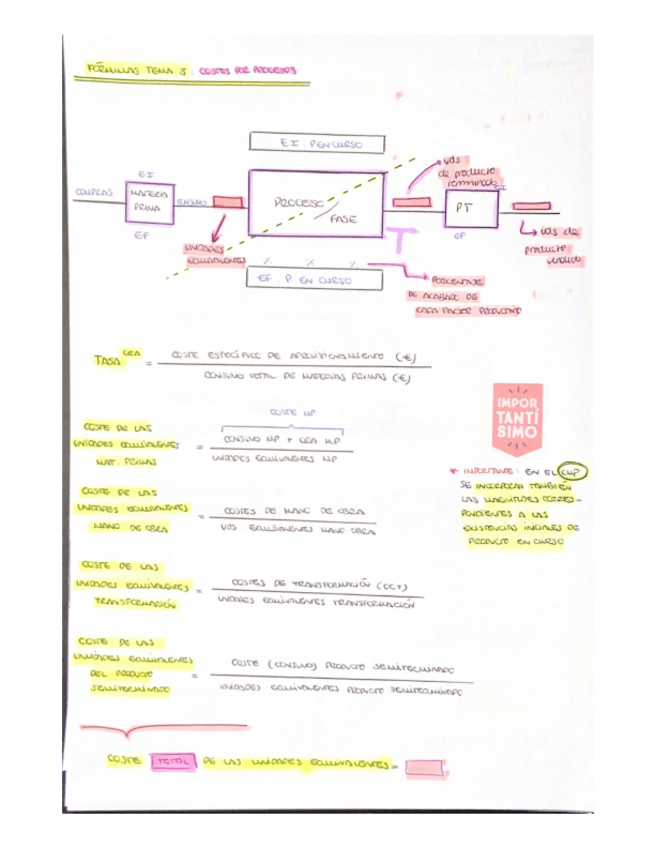 FÓRMULAS TEMA 3: COSTES POR PROCESOS
EI. P EN CURSO
uds
de producto
terminado
EI
EI
COMPRAS
MATERIA
PRIMA
CONSUMO
PROCESO
FASE
PT
EF
EF
uds de
producto
vendido
UNIDADES
EQUIVALENTES
% % %
EF. P EN CURSO
PORCENTAJE
DE ACABADO DE
CADA FACTOR PRODUCTIVO
TASA CEA = COSTE ESPECÍFICO DE APROVISIONAMIENTO (€)
CONSUMO TOTAL DE MATERIAS PRIMAS (€)
IMPOR
TANTÍ
SIMO
COSTE MP
COSTE DE LAS
UNIDADES EQUIVALENTES
MAT. PRIMAS
= CONSUMO MP + CEA MP
UNIDADES EQUIVALENTES MP
* IMPORTANTE: EN EL CMP
SE INCORPORAN TAMBIÉN
LAS MAGNITUDES CORRES-
PONDIENTES A LAS
EXISTENCIAS INICIALES DE
PRODUCTO EN CURSO
COSTE DE LAS
UNIDADES EQUIVALENTES
MANO DE OBRA
= COSTES DE MANO DE OBRA
UDS EQUIVALENTES MANO OBRA
COSTE DE LAS
UNIDADES EQUIVALENTES
TRANSFORMACIÓN
= COSTES DE TRANSFORMACIÓN (CCT)
UNIDADES EQUIVALENTES TRANSFORMACIÓN
COSTE DE LAS
UNIDADES EQUIVALENTES
DEL PRODUCTO
SEMITERMINADO
= COSTE (CONSUMO) PRODUCTO SEMITERMINADO
UNIDADES EQUIVALENTES PRODUCTO SEMITERMINADO
COSTE TOTAL DE LAS UNIDADES EQUIVALENTES =